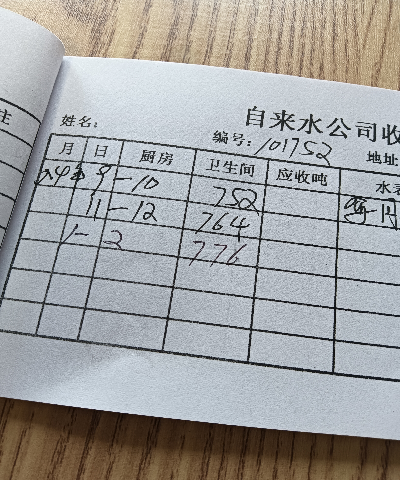 注
自来水公司收
姓名:
编号: 101752
地址
月 日 厨房 卫生间 应收吨 水表
9-10 752
11-12 764
1-2 776